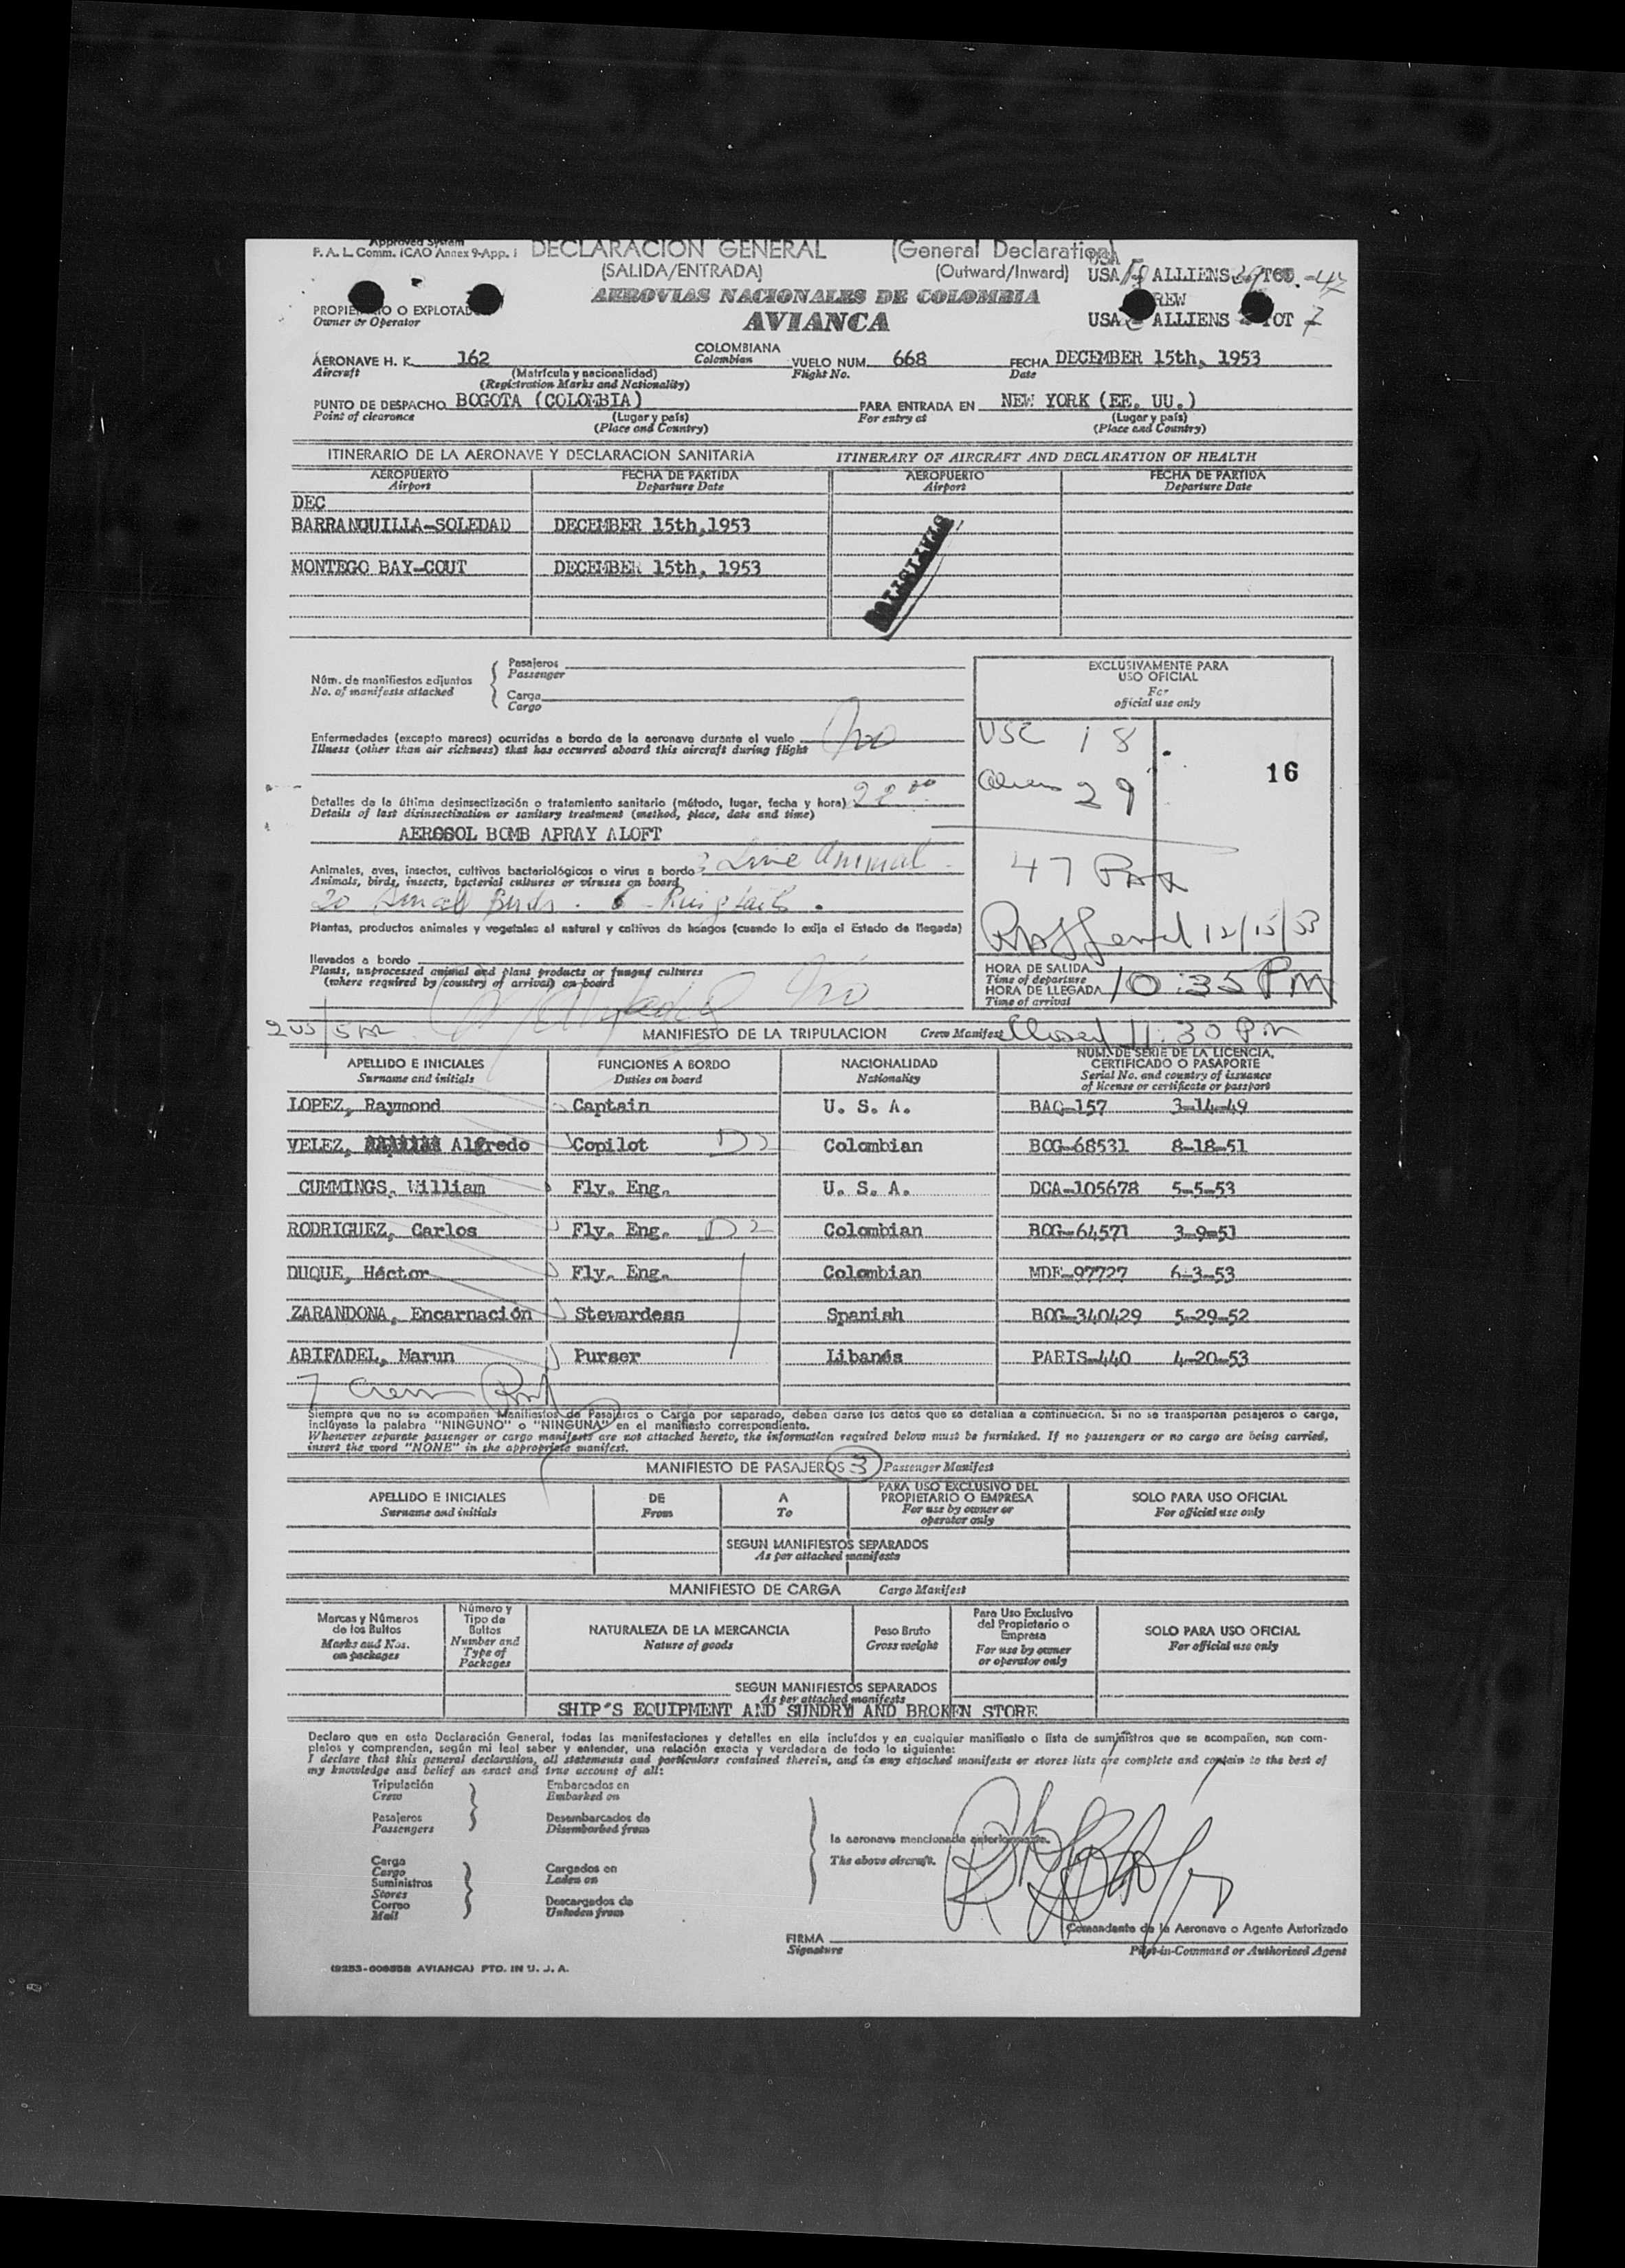 Approved System
P. A. L. Comm. ICAO Annex 9-App. I DECLARACION GENERAL (General Declaration)
(SALIDA/ENTRADA) (Outward/Inward) USA 18 ALLIENS 29 TOT. 47
AEROVIAS NACIONALES DE COLOMBIA
PROPIETARIO O EXPLOTADOR
Owner or Operator
AVIANCA
USA ALLIENS TOT 7
AERONAVE H. K. 162 COLOMBIANA VUELO NUM. 668 FECHA DECEMBER 15th, 1953
Aircraft (Matrícula y nacionalidad) Colombian Flight No. Date
(Registration Marks and Nationality)
PUNTO DE DESPACHO BOGOTA (COLOMBIA) PARA ENTRADA EN NEW YORK (EE. UU.)
Point of clearance (Lugar y país) For entry at (Lugar y país)
(Place and Country) (Place and Country)
ITINERARIO DE LA AERONAVE Y DECLARACION SANITARIA ITINERARY OF AIRCRAFT AND DECLARATION OF HEALTH
AEROPUERTO FECHA DE PARTIDA AEROPUERTO FECHA DE PARTIDA
Airport Departure Date Airport Departure Date
DEC
BARRANQUILLA-SOLEDAD DECEMBER 15th,1953
MONTEGO BAY-COUT DECEMBER 15th, 1953
STATISTICAL
Núm. de manifiestos adjuntos
No. of manifests attached
Pasajeros
Passenger
Carga
Cargo
EXCLUSIVAMENTE PARA
USO OFICIAL
For
official use only
Enfermedades (excepto mareos) ocurridas a bordo de la aeronave durante el vuelo No
Illness (other than air sickness) that has occurred aboard this aircraft during flight
USC 18
16
Aliens 29
Detalles de la última desinsectización o tratamiento sanitario (método, lugar, fecha y hora) 22 00
Details of last disinsectization or sanitary treatment (method, place, date and time)
AEROSOL BOMB APRAY ALOFT
47 Pax
Animales, aves, insectos, cultivos bacteriológicos o virus a bordo 3 Live Animal
Animals, birds, insects, bacterial cultures or viruses on board
20 Small Birds. 6 - Ringtails.
Plantas, productos animales y vegetales al natural y cultivos de hongos (cuando lo exija el Estado de llegada)
12/15/53
llevados a bordo
Plants, unprocessed animal and plant products or fungus cultures
(where required by country of arrival) on board No
HORA DE SALIDA
Time of departure
HORA DE LLEGADA 10:35 PM
Time of arrival
MANIFIESTO DE LA TRIPULACION Crew Manifest Closed 11:30 PM
APELLIDO E INICIALES FUNCIONES A BORDO NACIONALIDAD NUM. DE SERIE DE LA LICENCIA,
CERTIFICADO O PASAPORTE
Surname and initials Duties on board Nationality Serial No. and country of issuance
of license or certificate or passport
LOPEZ, Raymond Captain U. S. A. BAQ-157 3-14-49
VELEZ, Alfredo Copilot Colombian BOG-68531 8-18-51
CUMMINGS, William Fly. Eng. U. S. A. DCA-105678 5-5-53
RODRIGUEZ, Carlos Fly. Eng. D2 Colombian BOG-64571 3-9-51
DUQUE, Héctor Fly. Eng. Colombian MDE-97727 6-3-53
ZARANDONA, Encarnación Stewardess Spanish BOG-340429 5-29-52
ABIFADEL, Marun Purser Libanés PARIS-440 4-20-53
7 Crew
Siempre que no se acompañen Manifiestos de Pasajeros o Carga por separado, deben darse los datos que se detallan a continuación. Si no se transportan pasajeros o carga,
inclúyase la palabra "NINGUNO" o "NINGUNA" en el manifiesto correspondiente.
Whenever separate passenger or cargo manifests are not attached hereto, the information required below must be furnished. If no passengers or no cargo are being carried,
insert the word "NONE" in the appropriate manifest.
MANIFIESTO DE PASAJEROS 3 Passenger Manifest
APELLIDO E INICIALES DE A PARA USO EXCLUSIVO DEL
PROPIETARIO O EMPRESA SOLO PARA USO OFICIAL
Surname and initials From To For use by owner or
operator only For official use only
SEGUN MANIFIESTOS SEPARADOS
As per attached manifests
MANIFIESTO DE CARGA Cargo Manifest
Marcas y Números
de los Bultos
Marks and Nos.
on packages
Número y
Tipo de
Bultos
Number and
Type of
Packages
NATURALEZA DE LA MERCANCIA
Nature of goods
Peso Bruto
Gross weight
Para Uso Exclusivo
del Propietario o
Empresa
For use by owner
or operator only
SOLO PARA USO OFICIAL
For official use only
SEGUN MANIFIESTOS SEPARADOS
As per attached manifests
SHIP'S EQUIPMENT AND SUNDRY AND BROKEN STORE
Declaro que en esta Declaración General, todas las manifestaciones y detalles en ella incluídos y en cualquier manifiesto o lista de suministros que se acompañen, son com-
pletos y comprenden, según mi leal saber y entender, una relación exacta y verdadera de todo lo siguiente:
I declare that this general declaration, all statements and particulars contained therein, and in any attached manifests or stores lists are complete and contain to the best of
my knowledge and belief an exact and true account of all:
Tripulación
Crew
Embarcados en
Embarked on
Pasajeros
Passengers
Desembarcados de
Disembarked from
la aeronave mencionada anteriormente.
The above aircraft.
Carga
Cargo
Suministros
Stores
Correo
Mail
Cargados en
Laden on
Descargados de
Unladen from
Comandante de la Aeronave o Agente Autorizado
FIRMA
Signature
Pilot-in-Command or Authorized Agent
AVIANCA) PTD. IN U. S. A.